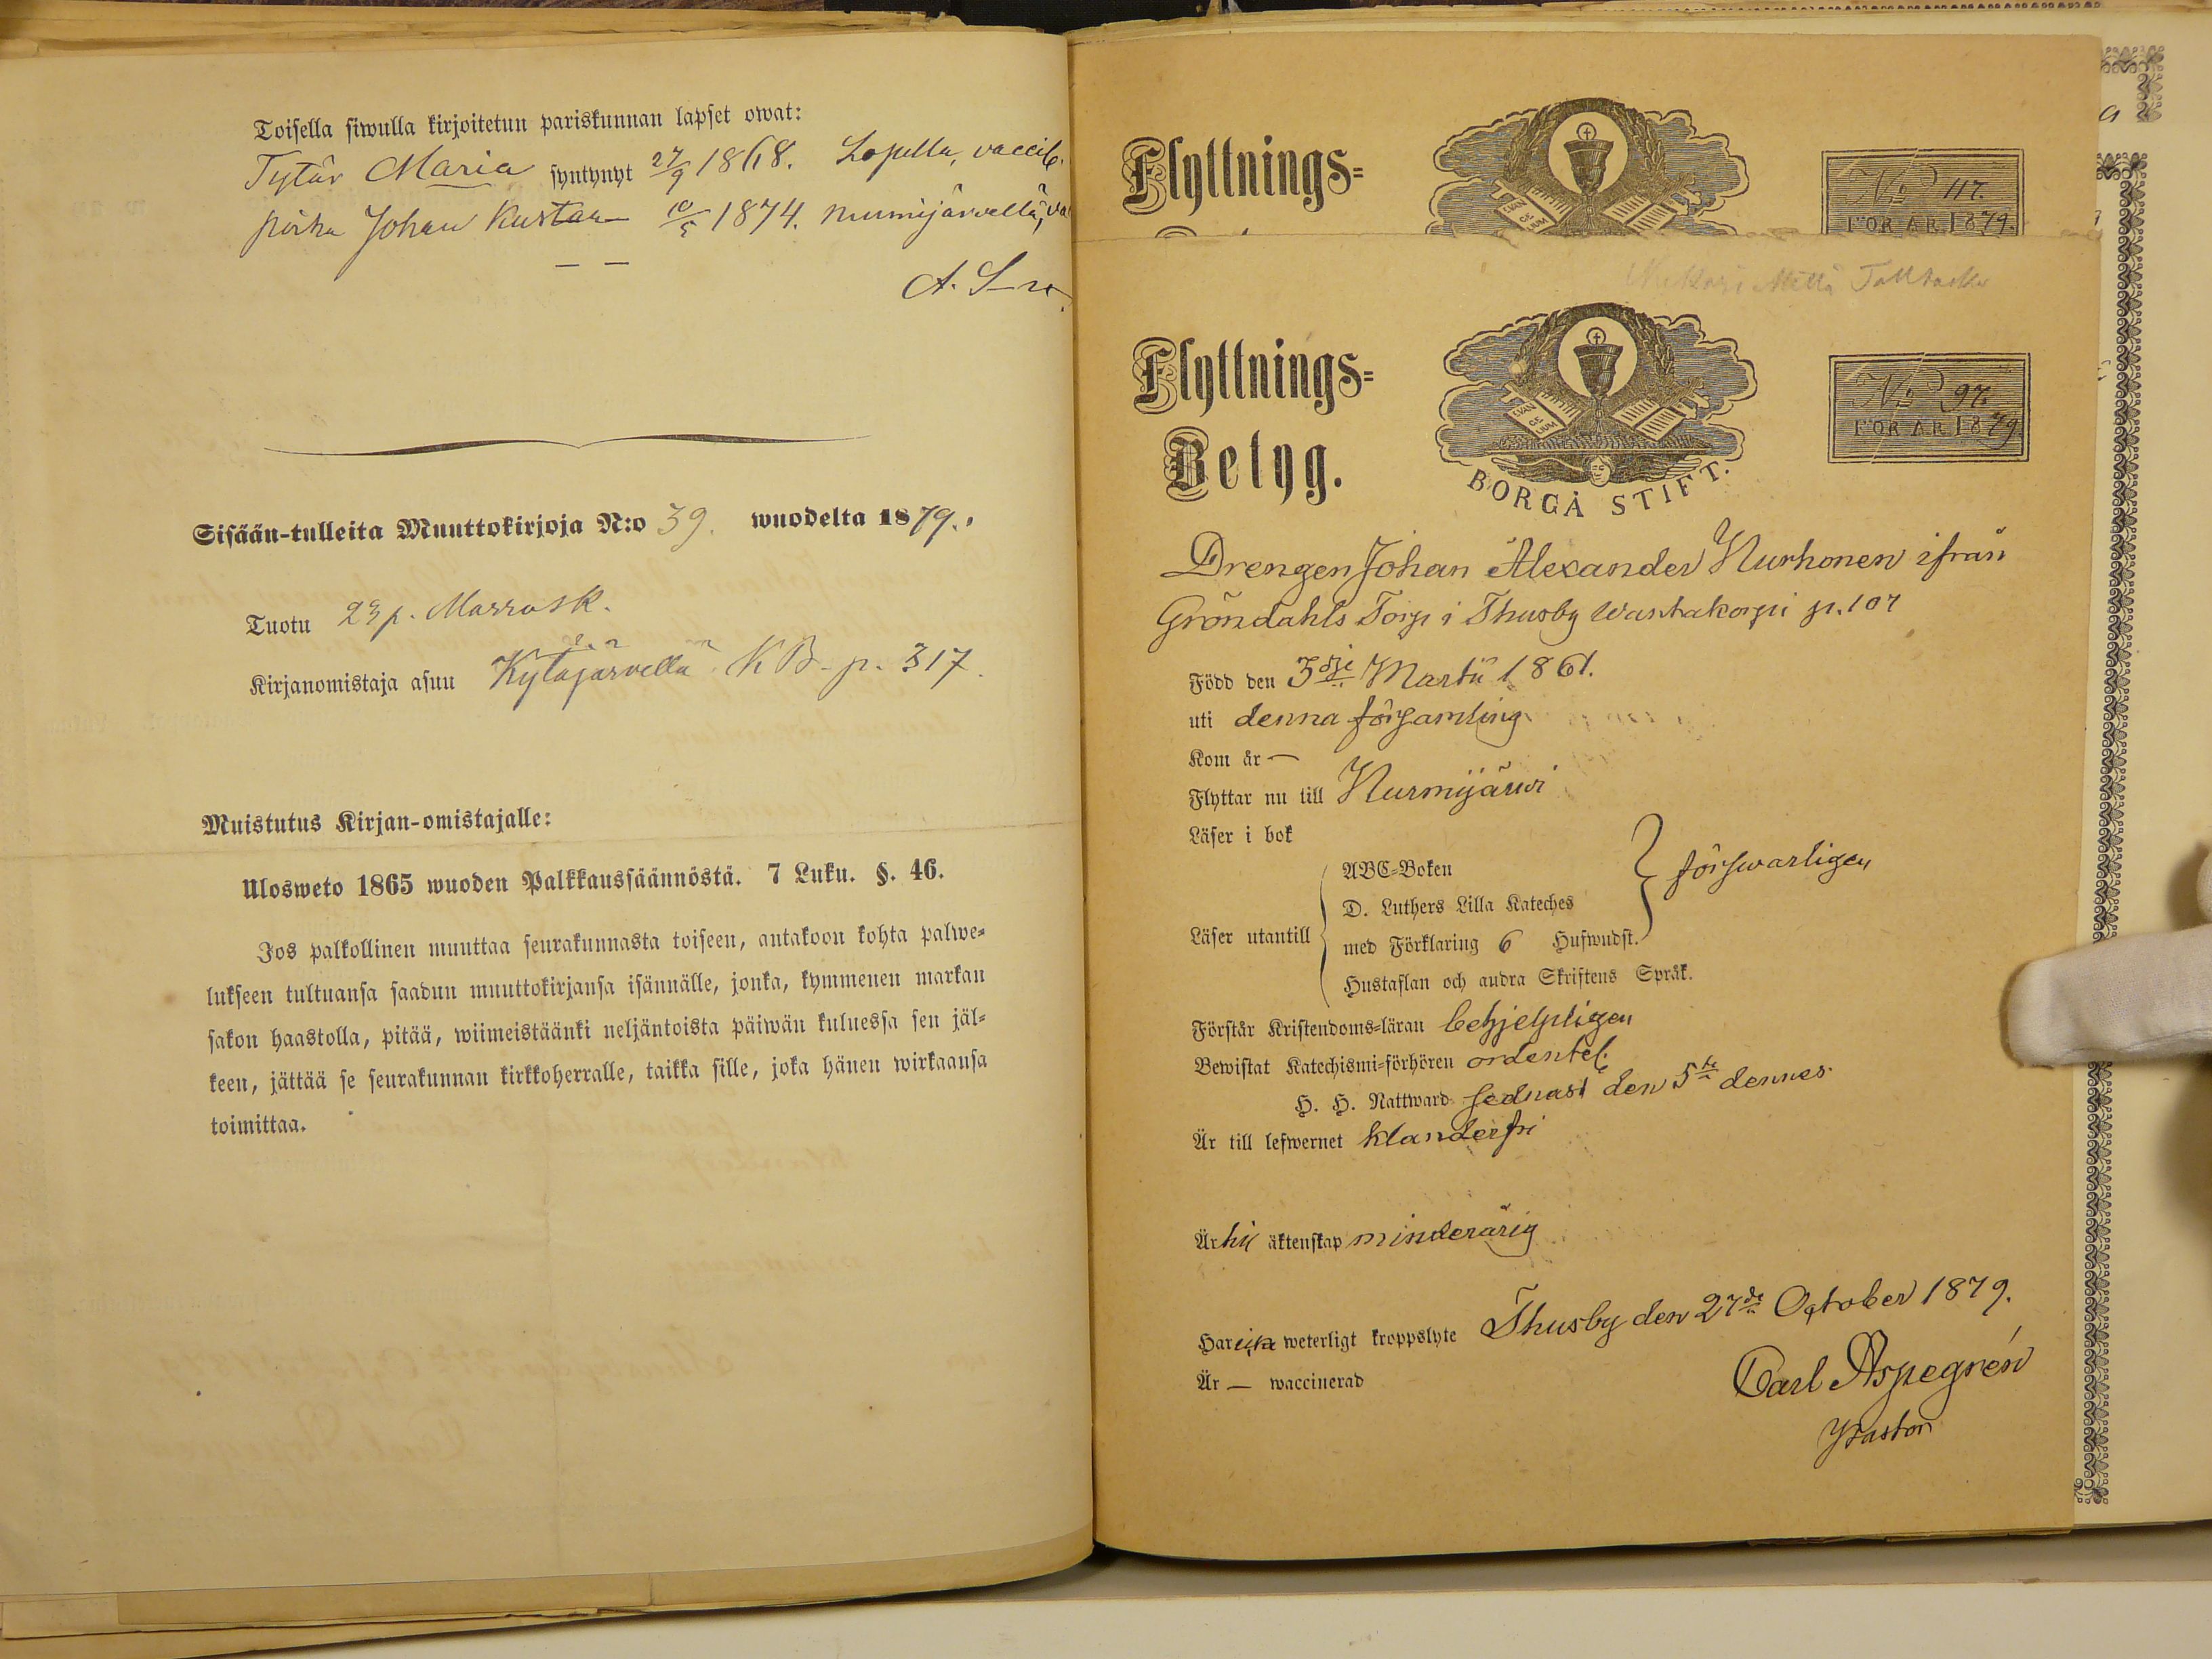 Toisella siwulla kirjoitetun pariskunnan lapset owat:
Tytär Maria syntynyt 27/9 1868. Lopella, vaccib.
poika Johan Kustaa 10/5 1874. Nurmijärvellä, va
A. L-n
Sisään-tulleita Muuttokirjoja N:o 39. wuodelta 1879.
Tuotu 23 p. Marrask.
Kirjanomistaja asuu Kytäjärvellä KB. p. 317.
Muistutus Kirjan-omistajalle:
Ulosweto 1865 wuoden Palkkaussäännöstä. 7 Luku. §. 46.
Jos palkollinen muuttaa seurakunnasta toiseen, antakoon kohta palwe-
lukseen tultuansa saadun muuttokirjansa isännälle, jonka, kymmenen markan
sakon haastolla, pitää, wiimeistäänki neljäntoista päiwän kuluessa sen jäl-
keen, jättää se seurakunnan kirkkoherralle, taikka sille, joka hänen wirkaansa
toimittaa.
Flyttnings-
EVAN GE LIUM
No 117.
FÖR ÅR 1879.
Flyttnings-
Betyg.
EVAN GE LIUM
BORGÅ STIFT.
No 97.
FÖR ÅR 1879.
Drengen Johan Alexander Nurhonen ifrån
Gröndahls Torp i Thusby Wanhakorpi p. 107
Född den 3dje Martii 1861.
uti denna församling
Kom år —
Flyttar nu till Nurmijärwi
Läser i bok
Läser utantill
ABC-Boken
D. Luthers Lilla Kateches
med Förklaring 6 Hufwudst.
Hustaflan och andra Skriftens Språk.
förswarligen
Förstår Kristendoms-läran behjelpligen
Bewistat Katechismi-förhören ordentel.
H. H. Nattward sednast den 5te dennes
Är till lefwernet klanderfri
Är till äktenskap minderårig
Har icke weterligt kroppslyte Thusby den 27de October 1879.
Är — waccinerad
Carl Aspegrén
Pastor